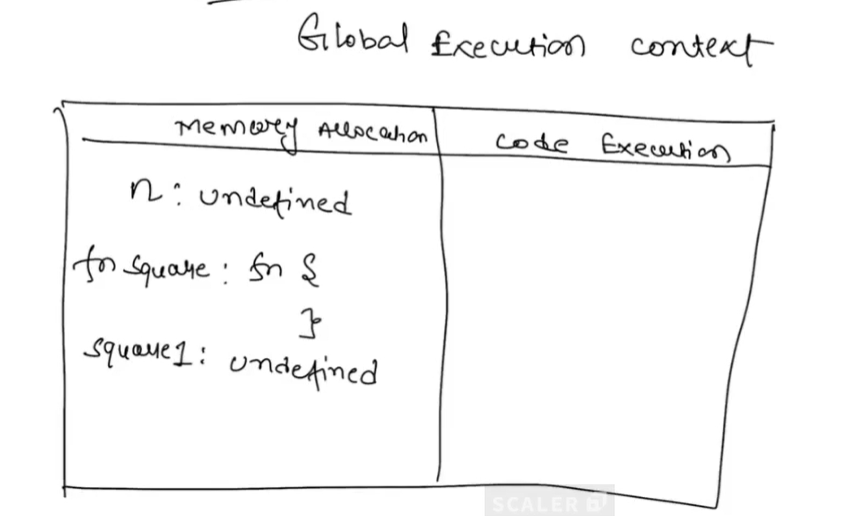 Global Execution context
Memory Allocation
Code Execution
n: undefined
fn square: fn {
}
square1: undefined
SCALER